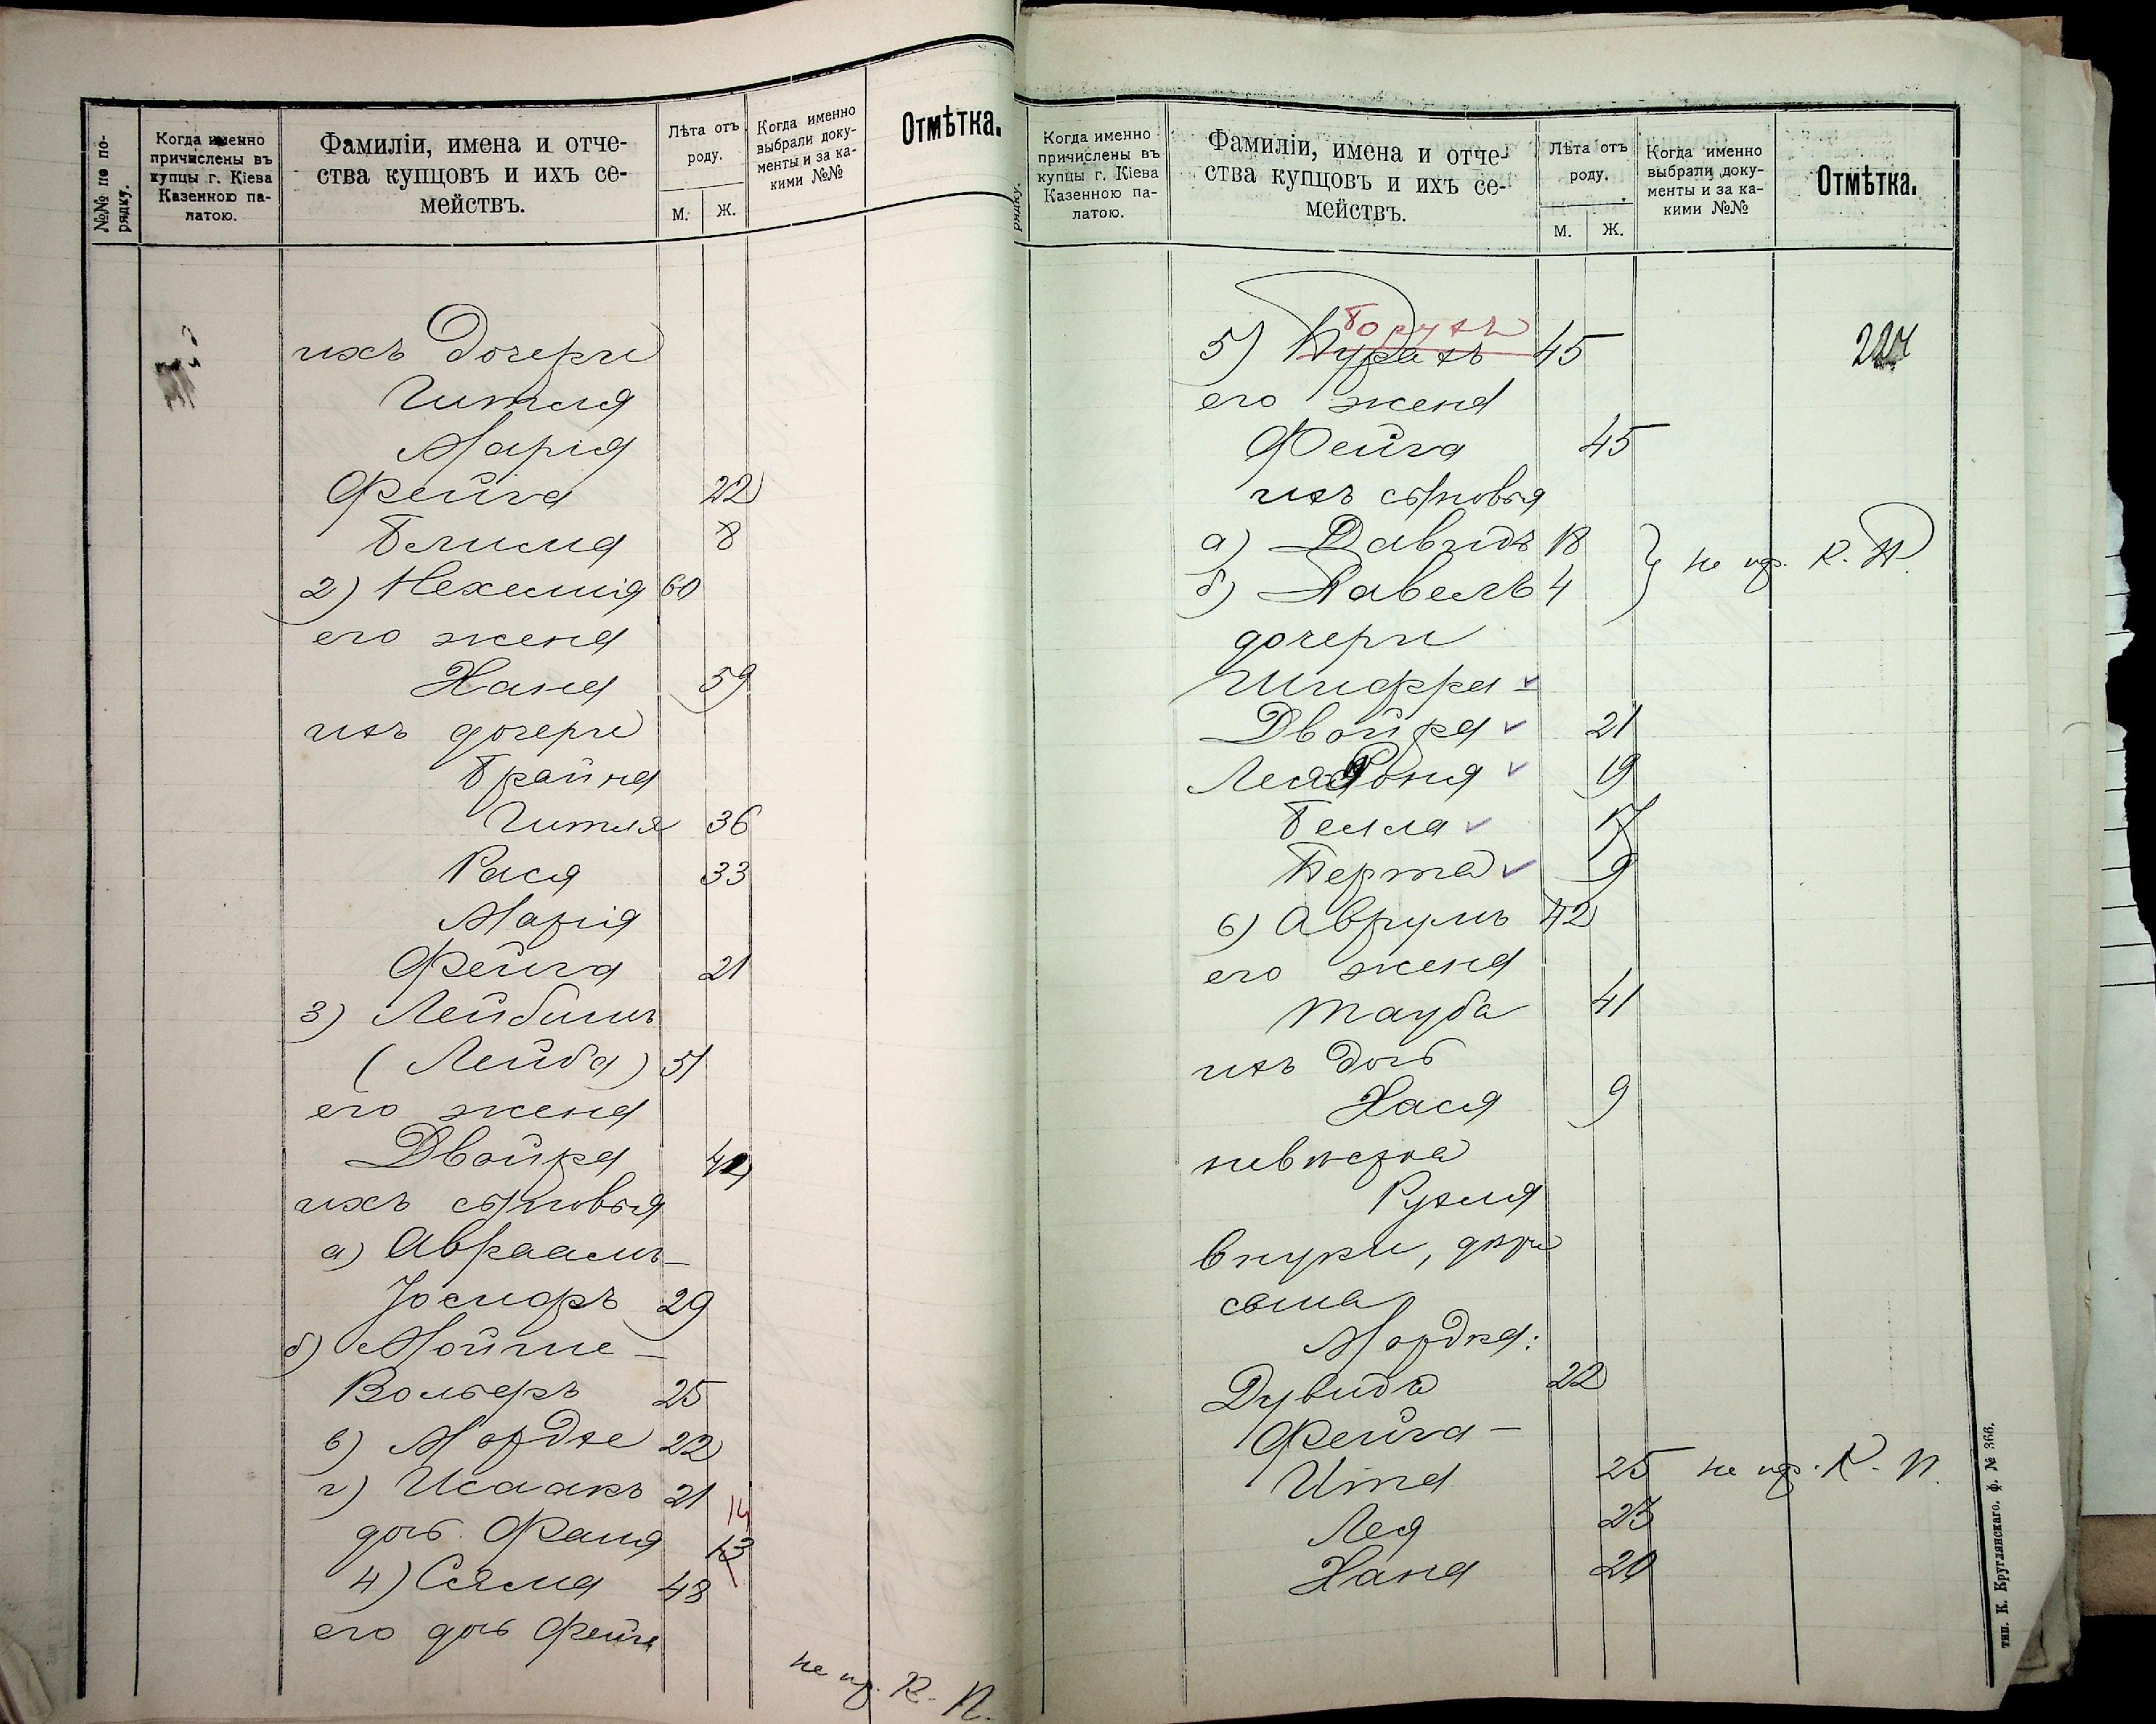 №№ по по-
рядку.
Когда именно
причислены въ
купцы г. Кіева
Казенною па-
латою.
Фамиліи, имена и отче-
ства купцовъ и ихъ се-
мействъ.
Лѣта отъ
роду.
М. Ж.
Когда именно
выбрали доку-
менты и за ка-
кими №№
Отмѣтка.
ихъ дочери
Гитля
Марія
Фейга 22
Белила 8
2) Нехемія 60
его жена
Хана 59
ихъ дочери
Брайна
Гитля 36
Рася 33
Марія
Фейга 21
3) Лейбишъ
(Лейба) 51
его жена
Двойра 42
ихъ сыновья
а) Авраамъ-
Іосифъ 29
б) Мойше-
Вольфъ 25
в) Мордхе 22
г) Исаакъ 21
14
дочь Фаня 13
4) Сяма 48
его дочь Фейга
не пр. К. П.
рядку.
Когда именно
причислены въ
купцы г. Кіева
Казенною па-
латою.
Фамиліи, имена и отче-
ства купцовъ и ихъ се-
мействъ.
Лѣта отъ
роду.
М. Ж.
Когда именно
выбрали доку-
менты и за ка-
кими №№
Отмѣтка.
Борухъ
5) 45 224
его жена
Фейга 45
ихъ сыновья
а) Давидъ 18
не пр. К. П.
б) Павелъ 4
дочери
Шифра -
Двойра 21
Лея Роня 19
Бейла 17
Берта 9
6) Аврумъ 42
его жена
Тауба 41
ихъ дочь
Хася 9
невѣстка
Рухля
внуки, дѣти
сына
Мордка:
Дувидъ 22
Фейга-
Ита 25 не пр. К. П.
Лея 23
Хана 20
тип. К. Круглянскаго, ф. № 366.